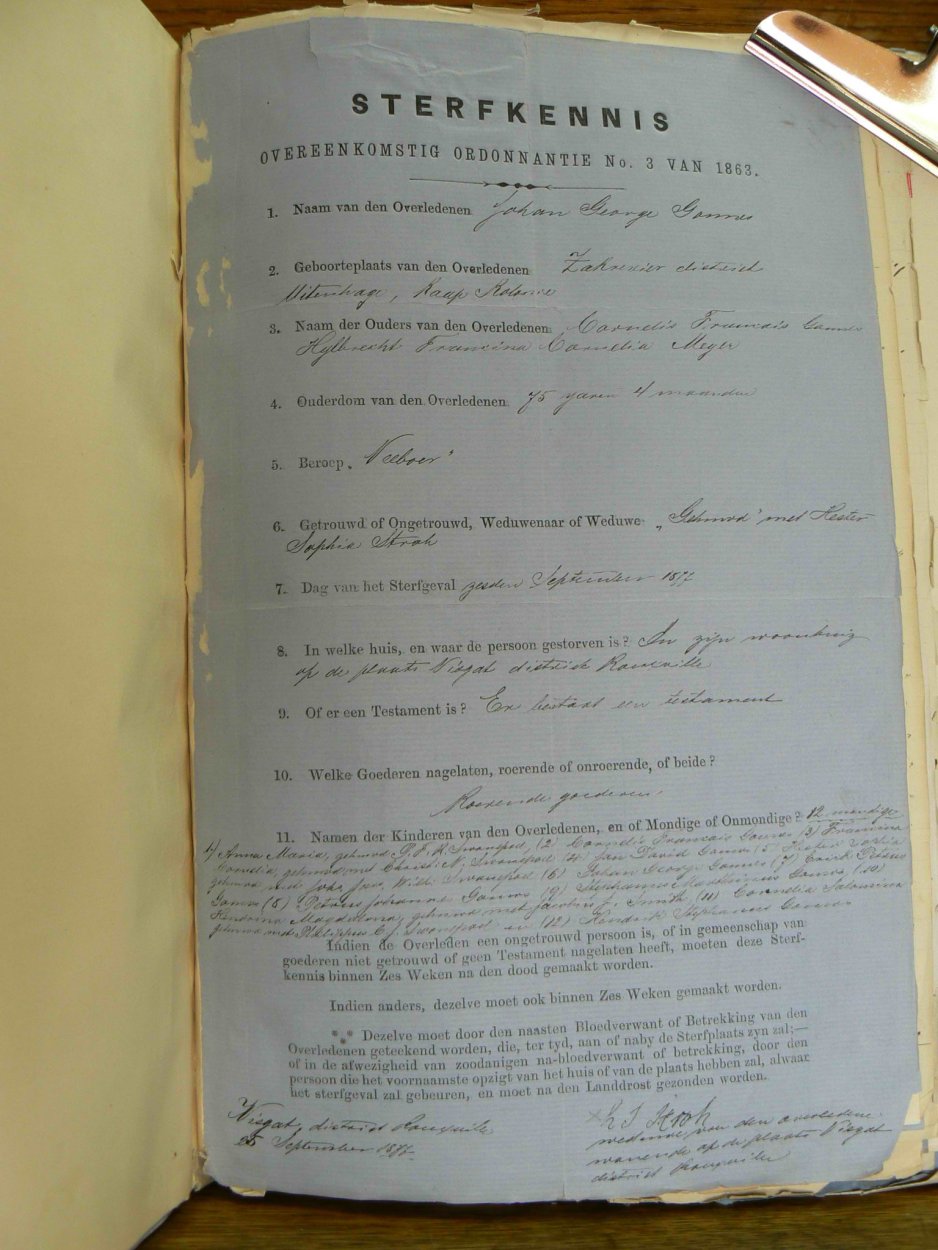 STERFKENNIS
OVEREENKOMSTIG ORDONNANTIE No. 3 VAN 1863.
1. Naam van den Overledenen Johan George Gouws
2. Geboorteplaats van den Overledenen Zakrevier district
Uitenhage, Kaap Kolonie
3. Naam der Ouders van den Overledenen Cornelis Francois Gouws
Hylbrecht Francina Cornelia Meyer
4. Ouderdom van den Overledenen 75 jaren 4 maanden
5. Beroep „Veeboer"
6. Getrouwd of Ongetrouwd, Weduwenaar of Weduwe „Gehuwd" met Hester
Sophia Stroh
7. Dag van het Sterfgeval zesden September 1877
8. In welke huis, en waar de persoon gestorven is? In zijn woonhuis
op de plaats Visgat district Rouxville
9. Of er een Testament is? Er bestaat een testament
10. Welke Goederen nagelaten, roerende of onroerende, of beide?
Roerende goederen
11. Namen der Kinderen van den Overledenen, en of Mondige of Onmondige? 12 mondige
1) Anna Maria, gehuwd P. J. R. Swanepoel, (2) Cornelis Francois Gouws (3) Francina
Cornelia, gehuwd met Christ. N. Swanepoel (4) Jan David Gouws (5) Hester Sophia
gehuwd met Joh. Wilh. Swanepoel (6) Johan George Gouws (7) Petrus
Gouws (8) Petrus Johannes Gouws (9) Stephanus Gouws (10)
Hendrina Magdalena, gehuwd met Jacobus J. Smith (11) Cornelia Salomina
gehuwd met Philippus C. J. Swanepoel en (12) Hendrik Stephanus Gouws
Indien de Overleden een ongetrouwd persoon is, of in gemeenschap van
goederen niet getrouwd of geen Testament nagelaten heeft, moeten deze Sterf-
kennis binnen Zes Weken na den dood gemaakt worden.
Indien anders, dezelve moet ook binnen Zes Weken gemaakt worden.
*** Dezelve moet door den naasten Bloedverwant of Betrekking van den
Overledenen geteekend worden, die, ter tyd, aan of naby de Sterfplaats zyn zal;—
of in de afwezigheid van zoodanigen na-bloedverwant of betrekking, door den
persoon die het voornaamste opzigt van het huis of van de plaats hebben zal, alwaar
het sterfgeval zal gebeuren, en moet na den Landdrost gezonden worden.
Visgat, district Rouxville
September 1877
H S Stroh
weduwe van den overledene
wonende op de plaats Visgat
district Rouxville